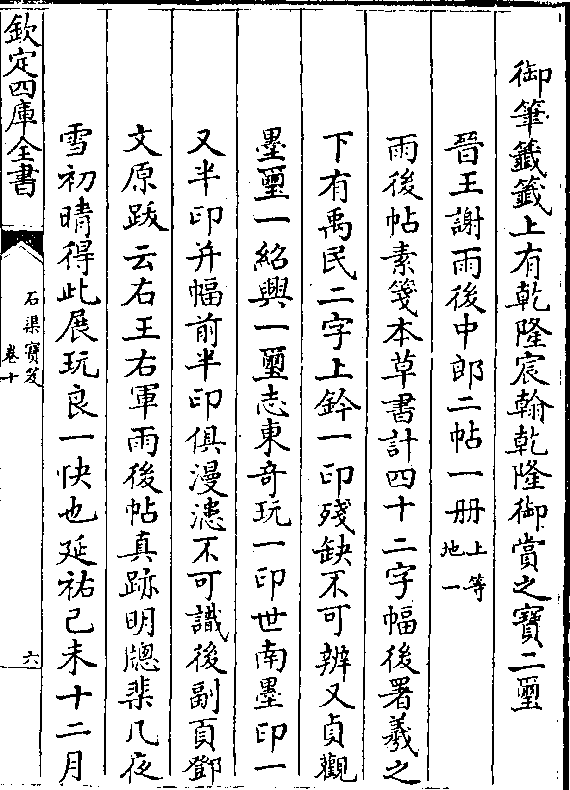 御筆籤籤上有乾隆宸翰乾隆御賞之寶二璽
晉王謝雨後中郎二帖一册上等地一
雨後帖素箋本草書計四十二字幅後署羲之
下有禹民二字上鈐一印殘缺不可辨又貞觀
墨璽一紹興一璽志東奇玩一印世南墨印一
又半印并幅前半印俱漫漶不可識後副頁鄧
文原跋云右王右軍雨後帖真跡明牕棐几夜
雪初晴得此展玩良一快也延祐己未十二月
欽定四庫全書
石渠寶笈
卷十
六